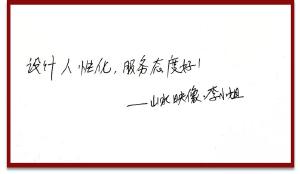 设计人性化，服务态度好！
——山水映像·李小姐